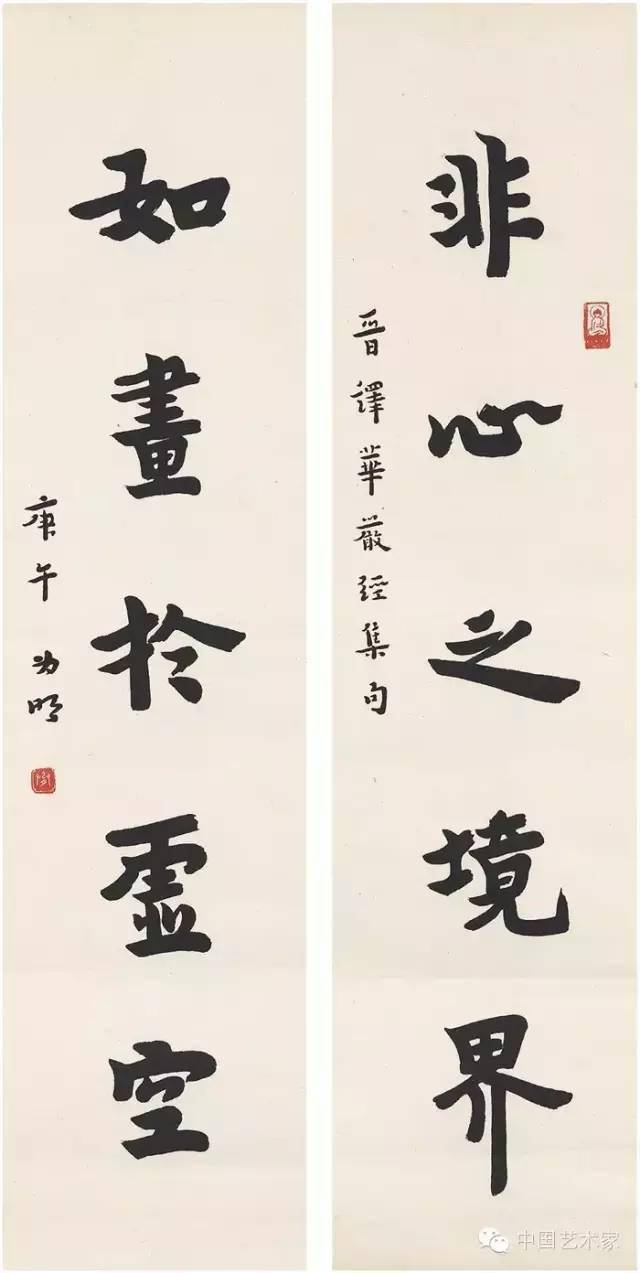 非心之境界
晋譯華嚴經集句
如畫於虛空
庚午 為明
中国艺术家